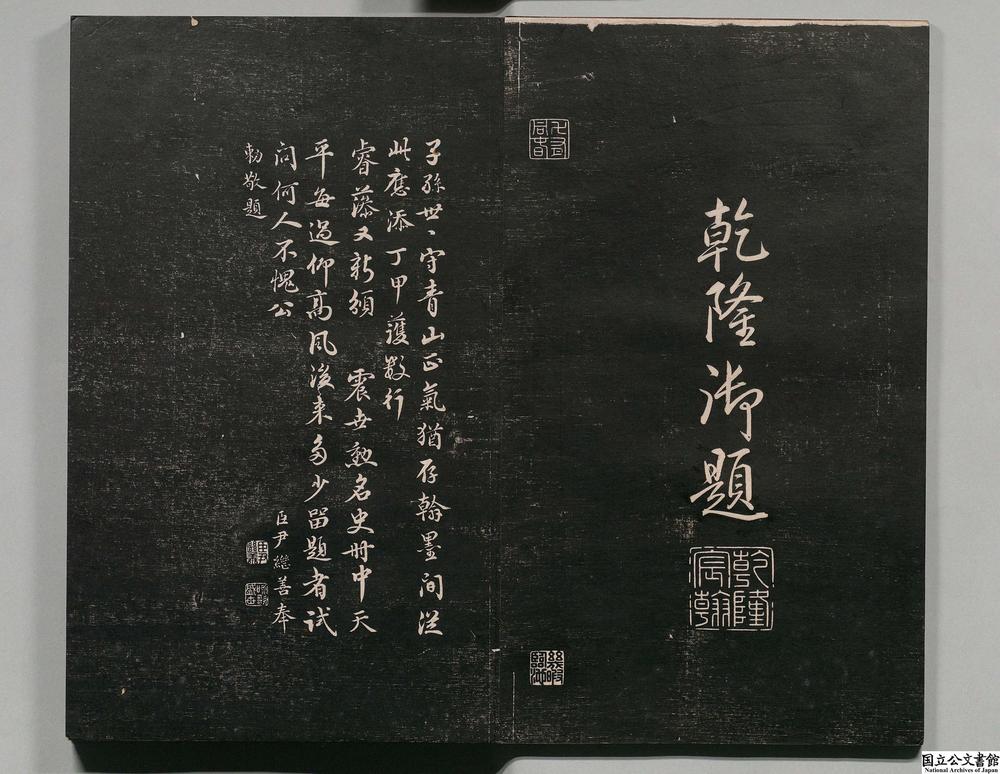 乾隆御題
乾隆宸翰
子孫世〻守青山正氣猶存翰墨間從
此應添丁甲護數行
睿藻又新頒　震世勲名史冊中天
平每過仰高風後来多少留題者試
問何人不愧公
臣尹繼善奉
勅敬題
国立公文書館
National Archives of Japan